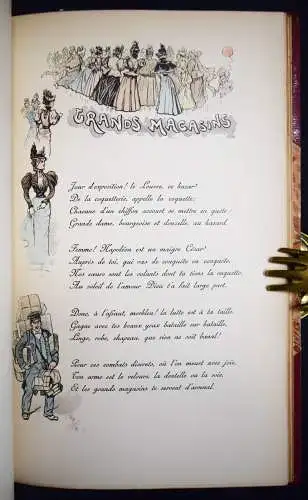 GRANDS MAGASINS
Jour d'exposition! le Louvre, ce bazar!
De la coquetterie, appelle la coquette:
Chacune d'un chiffon accourt se mettre en quête
Grande dame, bourgeoise et donzelle, au hasard.
Femme! Napoléon est un maigre César!
Auprès de toi, qui vas de conquête en conquête.
Nos cœurs sont les volants dont tu tiens la raquette.
Au soleil de l'amour Dieu t'a fait large part.
Donc, à l'affût, morbleu! la lutte est à ta taille.
Gagne avec tes beaux yeux bataille sur bataille,
Linge, robe, chapeau, que rien ne soit banal!
Pour ces combats discrets, où l'on meurt avec joie,
Ton arme est le velours, la dentelle ou la soie,
Et les grands magasins te servent d'arsenal.